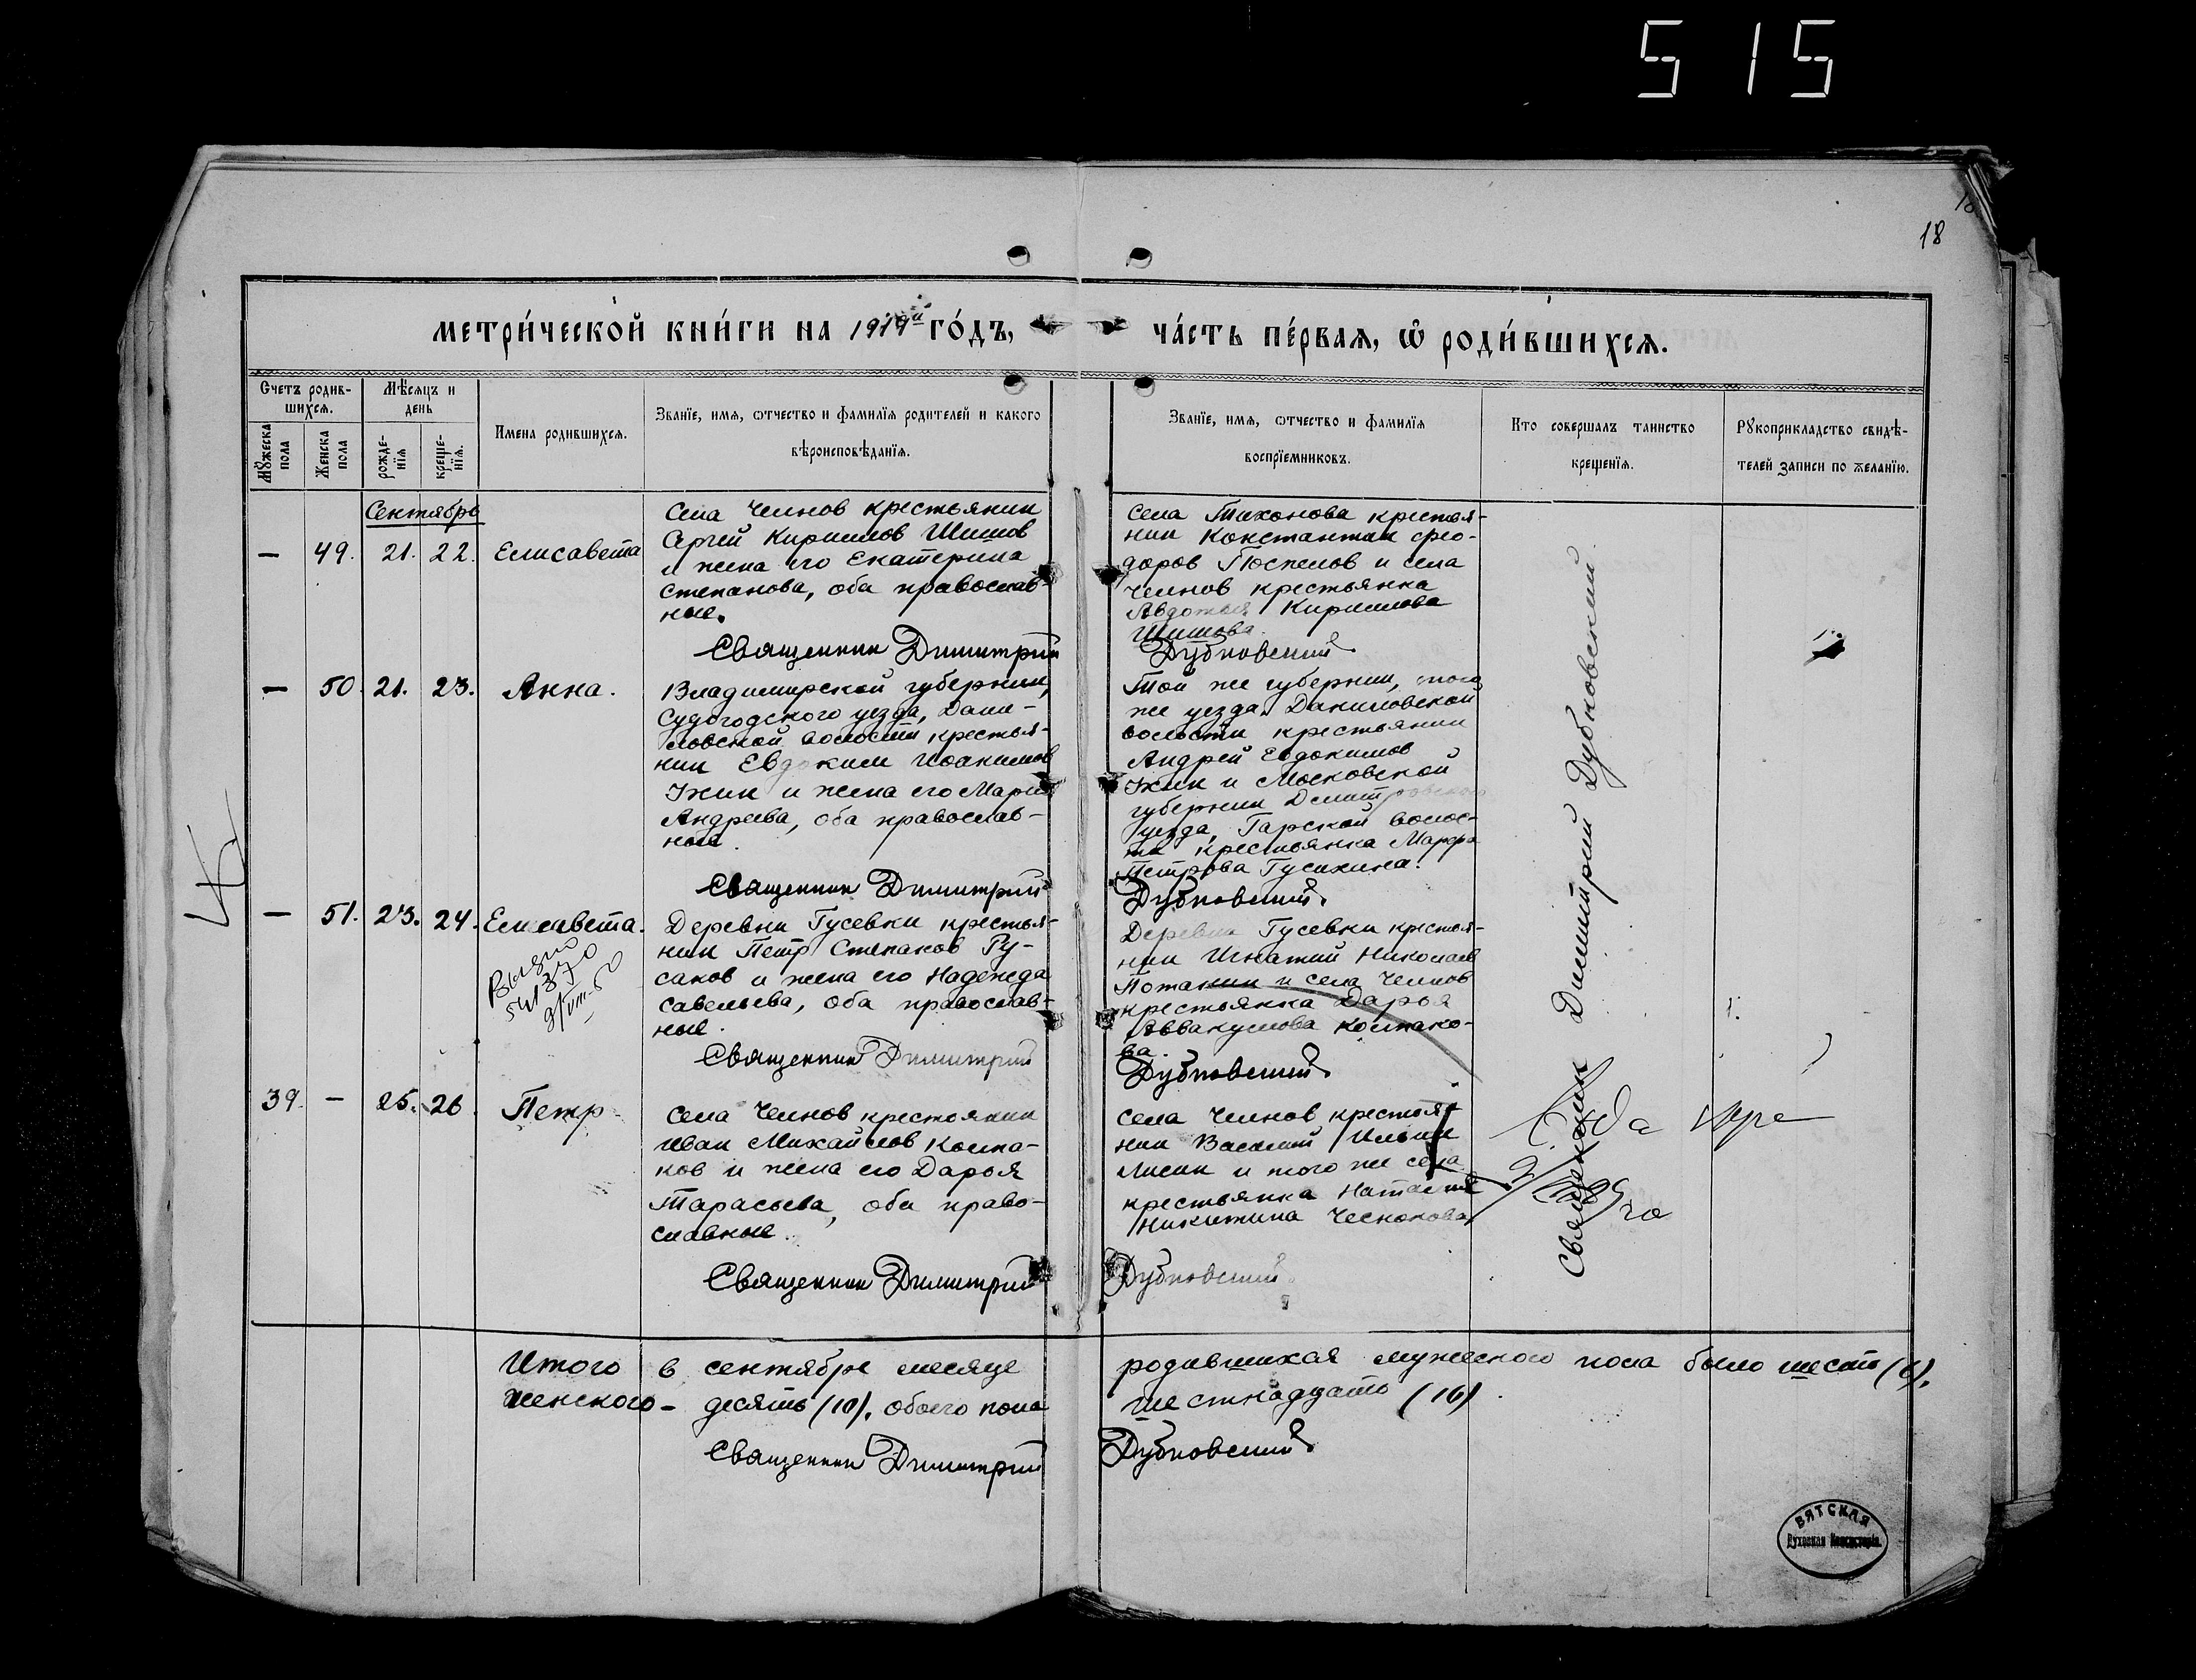 515
18
метри́ческой кни́ги на 1919й го́дъ,
ча́сть пе́рвая, ѡ҆ роди́вшихся.
Счетъ родив-
шихся.
Мѣсяцъ и
день
Мꙋжеска
пола
Женска
пола
рожде-
нїя
креще-
нїя.
Имена родившихся.
Званїе, имя, ѿчество и фамилїя родителей и какого
вѣроисповѣданїя.
Званїе, имя, ѿчество и фамилїя
воспрїемниковъ.
Кто совершалъ таинство
крещенїя.
Рꙋкоприкладство свидѣ-
телей записи по желанїю.
Сентябрь
— 49. 21. 22. Елисавета
Села Челнов крестьянин
Сергей Кириллов Шишов
и жена его Екатерина
Степанова, оба православ-
ные.
Священник Димитрий
Села Тихонова крестья-
нин Константин Фео-
доров Поспелов и села
Челнов крестьянка
Авдотья Кириллова
Шишова.
Дубновский
— 50. 21. 23. Анна.
Владимирской губернии,
Судогодского уезда, Дани-
ловской волости крестья-
нин Евдоким Иоакимов
и жена его Мария
Андреева, оба православ-
ные.
Священник Димитрий
Той же губернии, того
же уезда, Даниловской
волости крестьянин
Андрей Евдокимов
и Московской
губернии Дмитровского
уезда, Гарской волос-
ти крестьянка Марфа
Петрова Гусихина.
Дубновский.
— 51. 23. 24. Елисавета.
Деревни Гусевки крестья-
нин Петр Степанов Ру-
саков и жена его Надежда
Савельева, оба православ-
ные.
Священник Димитрий
Деревни Гусевки крестья-
нин Игнатий Николаев
Потанин и села Челнов
крестьянка Дарья
Аввакумова Колпако-
ва.
Дубновский.
39. — 25. 26. Петр
Села Челнов крестьянин
Иван Михайлов Колпа-
ков и жена его Дарья
Тарасьева, оба право-
славные.
Священник Димитрий
Села Челнов крестья-
нин Василий Ильин
Лисин и того же села
крестьянка Наталия
Никитина Чеснокова
Дубновский.
Священник Димитрий Дубновский.
Итого в сентябре месяце родившихся мужеского пола было шесть (6),
женского - десять (10), обоего пола шестнадцать (16).
Священник Димитрий Дубновский
ВЯТСКАЯ
Духовная Консисторія.